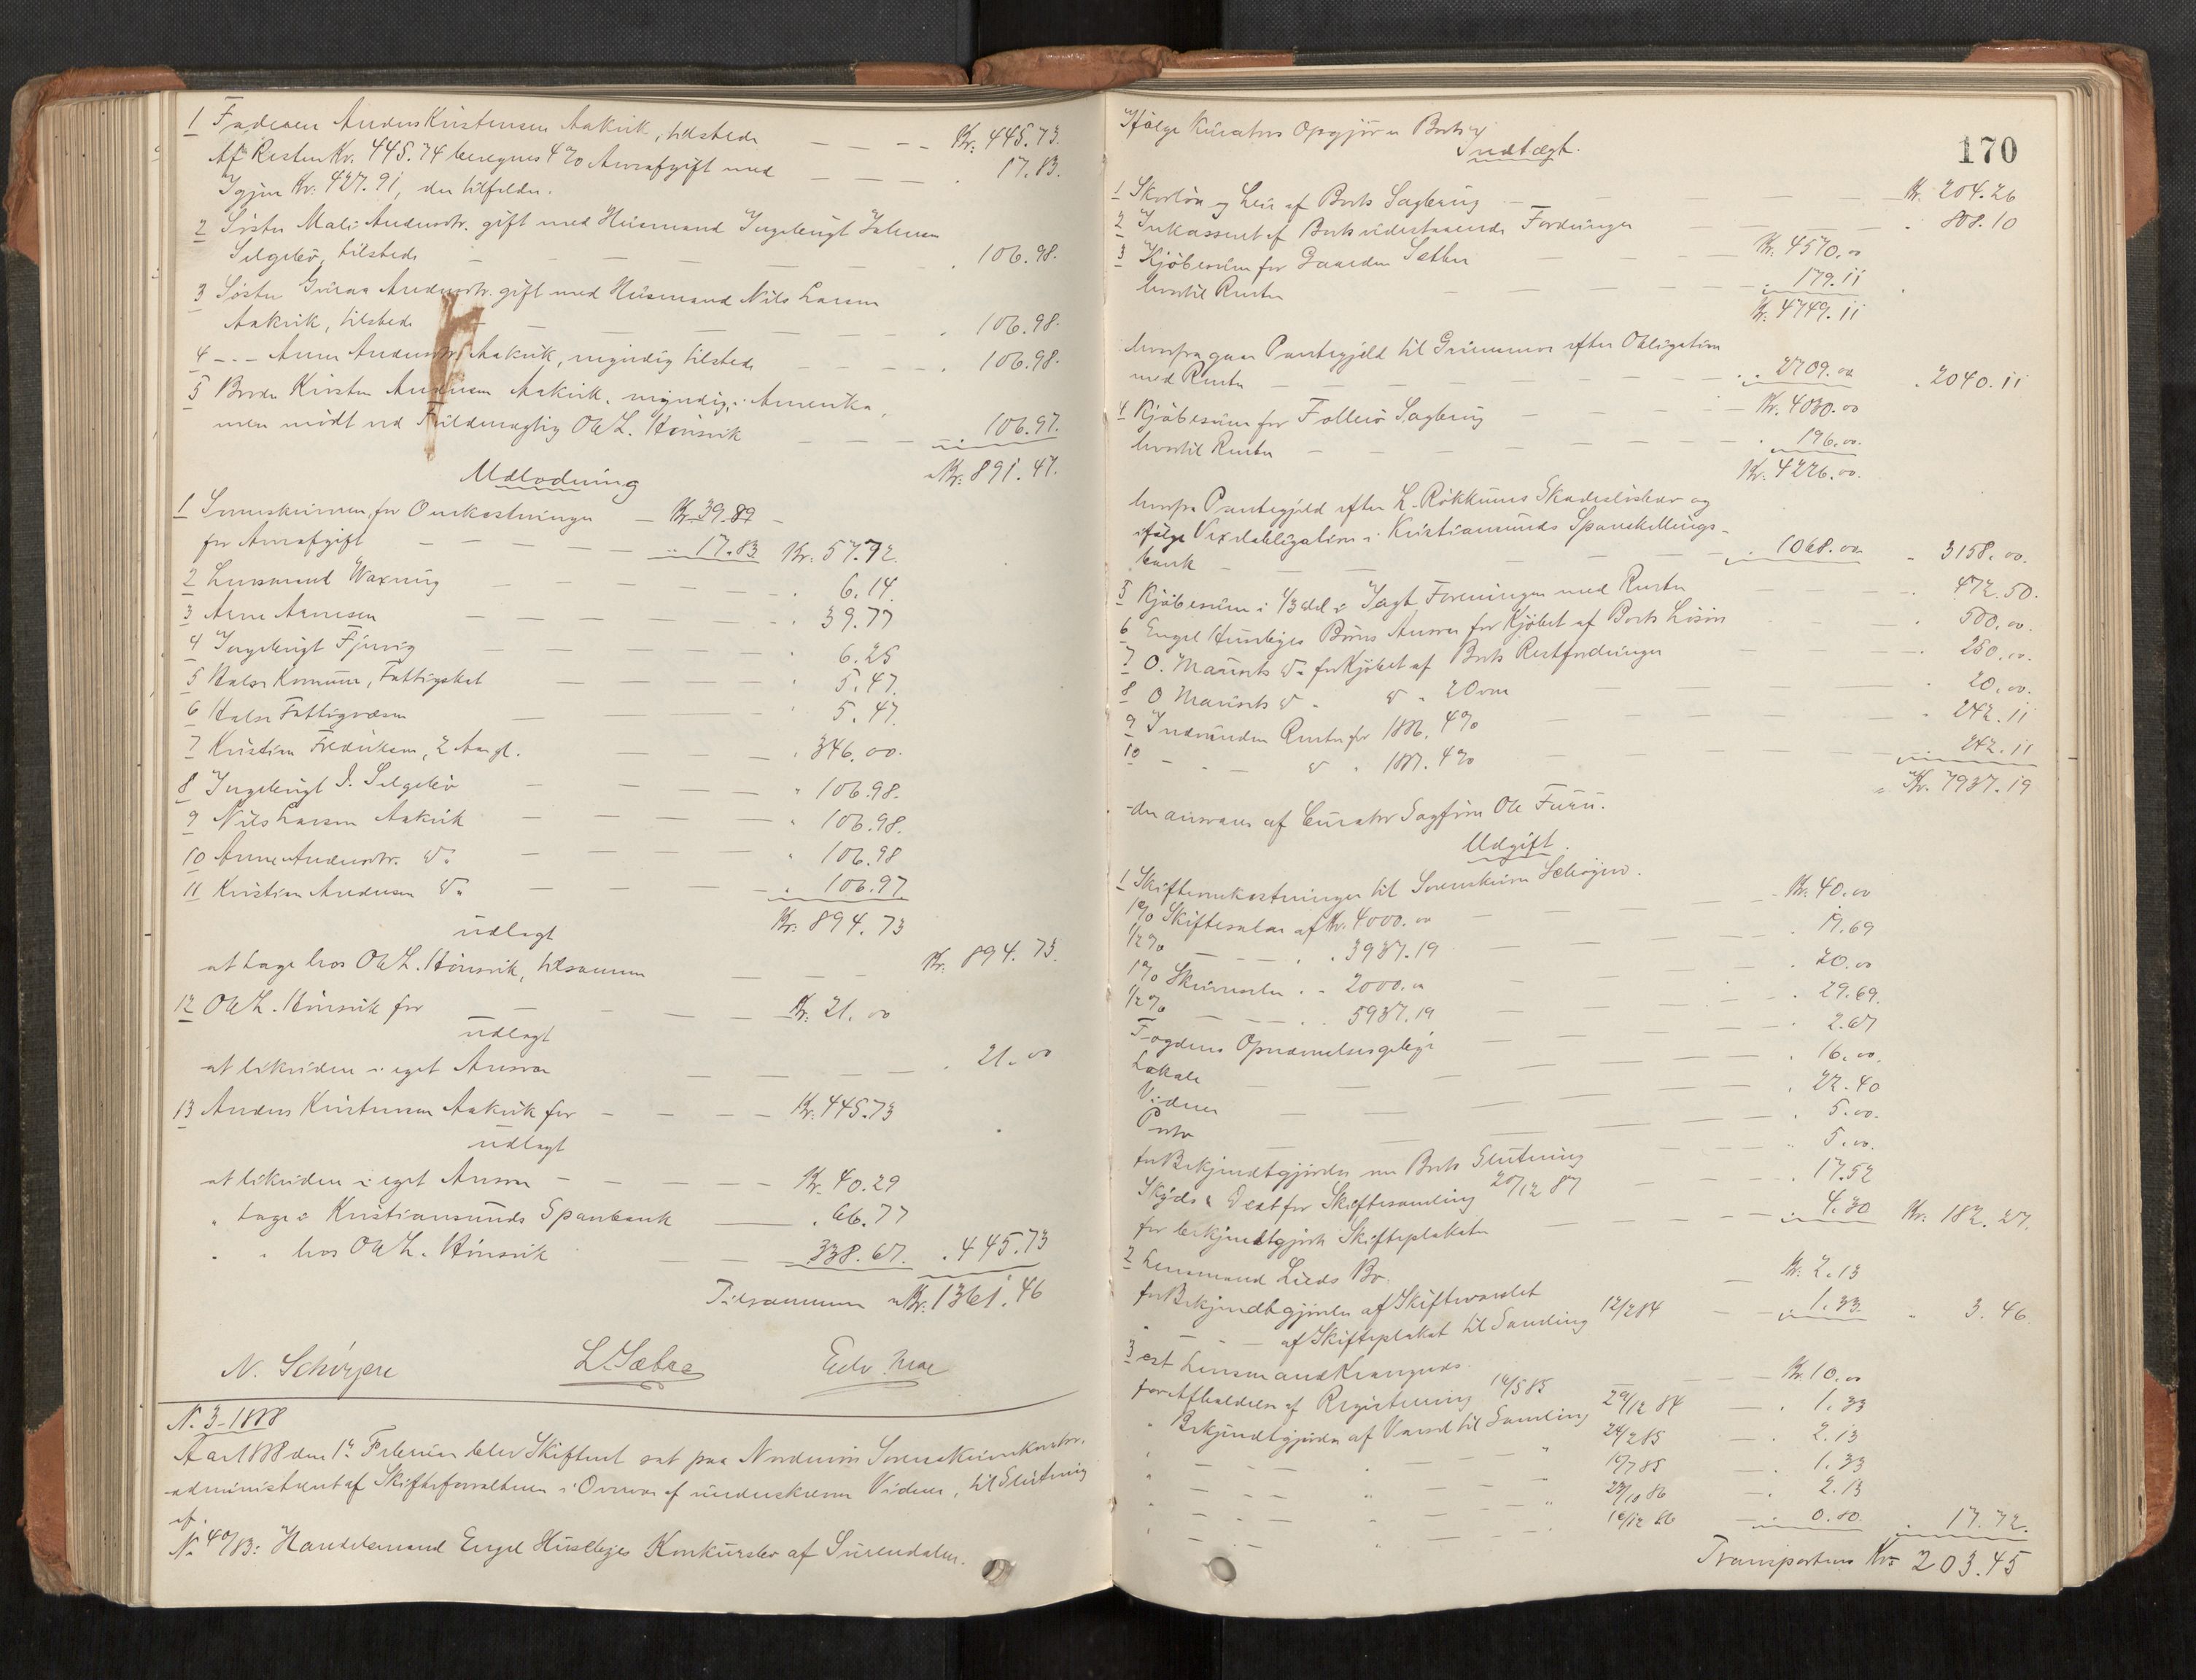 1 Faderen Anders Kristensen Aakvik, tilstede — — — Kr. 445.73.
Af Resten Kr. 445.74 beregnes 4% Arveafgift med — — — . 17.83.
Igjen Kr. 427.91, der tilfalder.
2 Søster Mali Andersdtr. gift med Husmand Ingebrigt Johnsen
Selgebø, tilstede — — — — — . 106.98.
3 Søster Guraa Andersdtr. gift med Husmand Nils Larsen
Aakvik, tilstede — — — — — . 106.98.
4 - . - Anne Andersdtr. Aakvik, myndig tilstede — — — . 106.98.
5 Broder Kristen Andersen Aakvik, myndig, i Amerika,
men mødt ved Fuldmægtig Ole L. Hønsvik — — — . 106.97.
Kr. 891.47.
Udlodning
1 Sorenskriveren for Omkostninger — Kr. 39.89 -
for Arveafgift — — — — " 17.83 Kr. 57.72.
2 Lensmand Waxning — — — — . 6.14.
3 Arne Arnesen — — — — — . 39.77
4 Ingebrigt Fjervig — — — — . 6.25
5 Halse Komune, Fattigskat — — — . 5.47.
6 Halse Fattigvæsen — — — — . 5.47.
7 Kristian Fredriksen, 2 Aargl. — — — . 346.00.
8 Ingebrigt J. Selgebø — — — — " 106.98.
9 Nils Larsen Aakvik — — — — " 106.98.
10 Anne Andersdtr. do — — — — " 106.98
11 Kristian Andersen do — — — — . 106.97
udlagt Kr. 894.73
at tage hos Ole L. Hønsvik, tilsammen — — — Kr. 894.73.
12 Ole L. Hønsvik for — — — — Kr. 21.00
udlagt
at likvidere i eget Ansvar — — — — . 21.00
13 Anders Kristensen Aakvik for — — — — Kr. 445.73
udlagt
at likvidere i eget Ansvar — — — — — Kr. 40.29
" tage i Kristiansunds Sparebank — . 66.77
" " hos Ole L. Hønsvik — — 338.67. . 445.73
Tilsammen Kr. 1361.46
N. Schörgen L. Sæbøe Edv Moe
N. 3 - 1888
Aar 1888 den 1ste Februar blev Skifteret sat paa Nordmør Sorenskriverkontor,
administreret af Skifteforvalteren i Overvær af underskrevne Vidner, til Slutning
af.
No 40/83: Handelsmand Engel Husebyes Konkursbo af Surendalen.
170
Ifølge Kurators Opgjør er Boets
Indtægt.
1 Skurløn og Leie af Boets Sagbrug — — — Kr. 204.26
2 Inkasseret af Boets udestaaende Fordringer — — . 808.10
3 Kjøbesum for Gaarden Sæther — — Kr. 4570.00
hvortil Renter — — — — — — . 179.11
Kr. 4749.11
hvorfra gaar Pantegjeld til Grimmer efter Obligation
med Renter — — — — — — . 2709.00 . 2040.11
4 Kjøbesum for Follerø Sagbrug — — — Kr. 4030.00
hvortil Renter — — — — — — . 196.00.
Kr. 4226.00.
hvorfra Pantegjeld efter L. Røkkums Skadesløsbrev og
ifølge Vexelobligation i Kristiansunds Spareskillings-
bank — — — — — . 1068.00 . 3158.00.
5 Kjøbesum i 1/3 del i Jagt Foreningen med Renter — . 472.50.
6 Engel Husebyes Børns Ansvar for Kjøbet af Boets Løsøre — . 500.00.
7 O. Mauseths do for Kjøbet af Boets Restfordringer — . 250.00.
8 O Mauseths do - do " — . 20.00.
9 Indvundne Renter for 1886. 4% — — . 242.11
10 - . - do " 1887. 4% — — . 242.11
Kr. 7937.19
- der ansvares af Curator Sagfører Ole Furu.
Udgift.
1 Skifteomkostninger til Sorenskriver Schörgen.
1% Skiftesalær af Kr. 4000.00 — — — Kr. 40.00
1/2% — — . . 3937.19 — — — . 19.69
1% Skriversalær . - 2000.00 — — — . 20.00
1/2% — — — . . 5937.19 — — — . 29.69.
Fogdens Opnævnelsesgebyr — — — . 2.67
Lokale — — — — — . 16.00.
Vidner — — — — — . 22.40
Porto — — — — — . 5.00.
for Bekjendtgjørelse om Boets Slutning — — . 5.00.
Skyds & Diæt for Skiftesamling 20/12 87 — — . 17.52
for bekjendtgjort Skifteplakater — — — . 4.30 Kr. 182.27.
2 Lensmand Lieds Bo.
for Bekjendtgjørelse af Skiftevarslet — Kr. 2.13
" - " - af Skifteplakat til Samling 12/2 84 — . 1.33 . 3.46.
3 cst Lensmand Kvangnes.
for Afholdelse af Registrering 14/5 85 — — Kr. 10.00
" Bekjendtgjørelse af Varsel til Samling 29/12 84 — . 1.33
" — — — " " 24/2 85 — . 2.13
" — — — " " 19/7 85 — . 1.33
" — — — " " 23/10 86 — . 2.13
" — — — " " 16/12 86 — . 0.80. . 17.72.
Transporteres Kr. 203.45